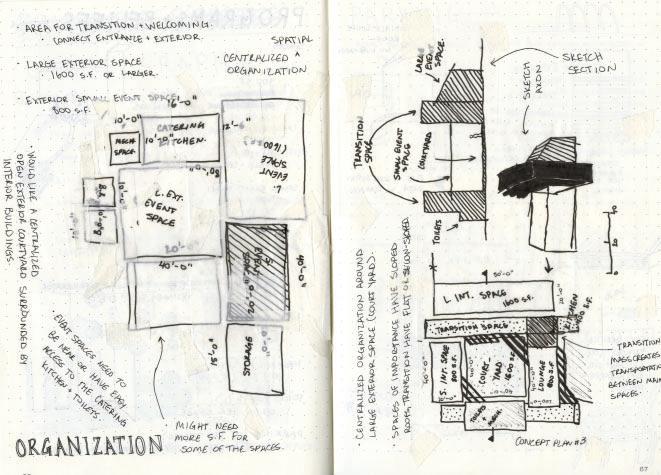 · AREA FOR TRANSITION + WELCOMING.
· CONNECT ENTRANCE + EXTERIOR.
· LARGE EXTERIOR SPACE
· 1600 S.F. OR LARGER.
· EXTERIOR SMALL EVENT SPACE:
· 800 S.F.
SPATIAL
· CENTRALIZED ^
ORGANIZATION
16'-0"
10'-0"
MECH.
SPACE.
CATERING
KITCHEN.
10'-0"
12'-6"
L.
EVENT
SPACE
(1600)
L. EXT.
EVENT
SPACE
20'-0"
40'-0"
S.
EVENT
SPACE
20'-0"
40'-0"
15'-0"
STORAGE
· WOULD LIKE A CENTRALIZED
OPEN EXTERIOR COURTYARD SURROUNDED BY
INTERIOR BUILDINGS.
· EVENT SPACES NEED TO
BE NEAR OR HAVE EASY
ACCESS TO THE CATERING
KITCHEN + TOILETS.
· MIGHT NEED
MORE S.F. FOR
SOME OF THE SPACES.
ORGANIZATION
LARGE
EVENT
SPACE.
SKETCH
SECTION
SKETCH
AXON
TRANSITION
SPACE
SMALL EVENT
SPACE
COURTYARD
TOILETS
· CENTRALIZED ORGANIZATION AROUND
LARGE EXTERIOR SPACE (COURTYARD).
· SPACES OF IMPORTANCE HAVE SLOPED
ROOFS, TRANSITION HAVE FLAT, OR SLOPED
0
20
40
L INT. SPACE
1600 S.F.
20'-0"
TRANSITION SPACE
KITCHEN
S. INT. SPACE
800 S.F.
40'-0"
COURT-
YARD
1600 S.F.
LOUNGE
800 S.F.
TOILETS
+ MECH.
TRANSITION
MASS CREATES
TRANSPORTATION
BETWEEN MAIN
SPACES.
CONCEPT PLAN #3
67